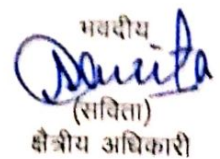 भवदीय
Davita
(सविता)
क्षेत्रीय अधिकारी